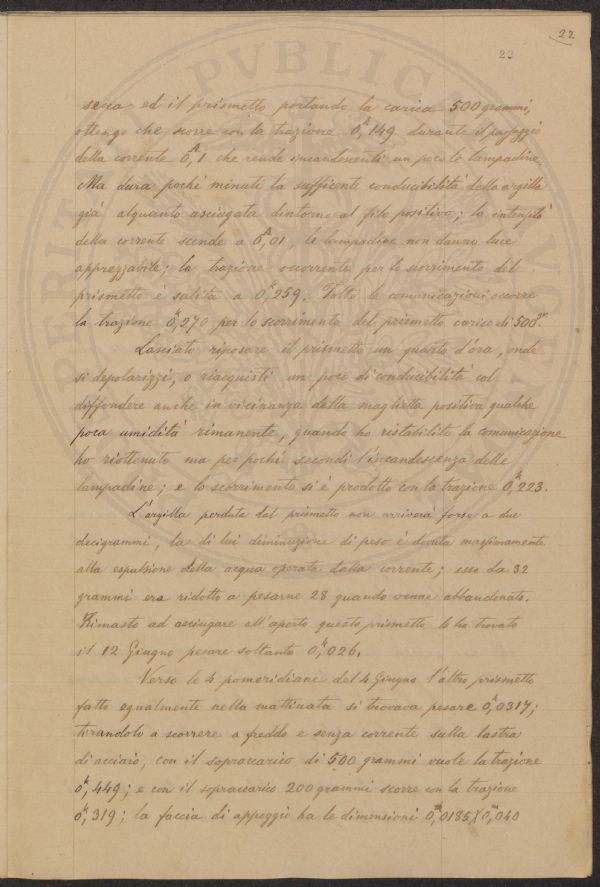 22
22
secca ed il prismetto portando la carica 500 grammi,
ottengo che scorre con la trazione 0,ᵏ149 durante il passaggio
della corrente 0,ᴬ1 che rende incandescenti un poco le lampadine.
Ma dura pochi minuti la sufficente conducibilità della argilla
già alquanto asciugata dintorno al filo positivo; la intensità
della corrente scende a 0,ᴬ01, le lampadine non danno luce
apprezzabile; la trazione occorrente per lo scorrimento del
prismetto è salita a 0,ᵏ259. Tolte le comunicazioni occorre
la trazione 0,ᵏ270 per lo scorrimento del prismetto carico di 500ᵍʳ.
Lasciato riposare il prismetto un quarto d'ora, onde
si depolarizzi, o riacquisti un poco di conducibilità col
diffondere anche in vicinanza della maglietta positiva qualche
poca umidità rimanente, quando ho ristabilite la comunicazione
ho riottenuto ma per pochi secondi l'incandescenza delle
lampadine; e lo scorrimento si è prodotto con la trazione 0,ᵏ223.
L'argilla perduta dal prismetto non arriverà forse a due
decigrammi, la di lui diminuzione di peso è dovuta massimamente
alla espulsione della acqua operata dalla corrente; esso da 32
grammi era ridotto a pesarne 28 quando venne abbandonato.
Rimasto ad asciugare all'aperto questo prismetto lo ho trovato
il 12 Giugno pesare soltanto 0,ᵏ026.
Verso le 4 pomeridiane del 4 Giugno l'altro prismetto
fatto egualmente nella mattinata si trovava pesare 0,ᵏ0317;
tirandolo a scorrere a freddo e senza corrente sulla lastra
di acciaio, con il sopraccarico di 500 grammi vuole la trazione
0,ᵏ449; e con il sopraccarico 200 grammi scorre con la trazione
0,ᵏ319; la faccia di appoggio ha le dimensioni 0,ᵐ0185 X 0,ᵐ040